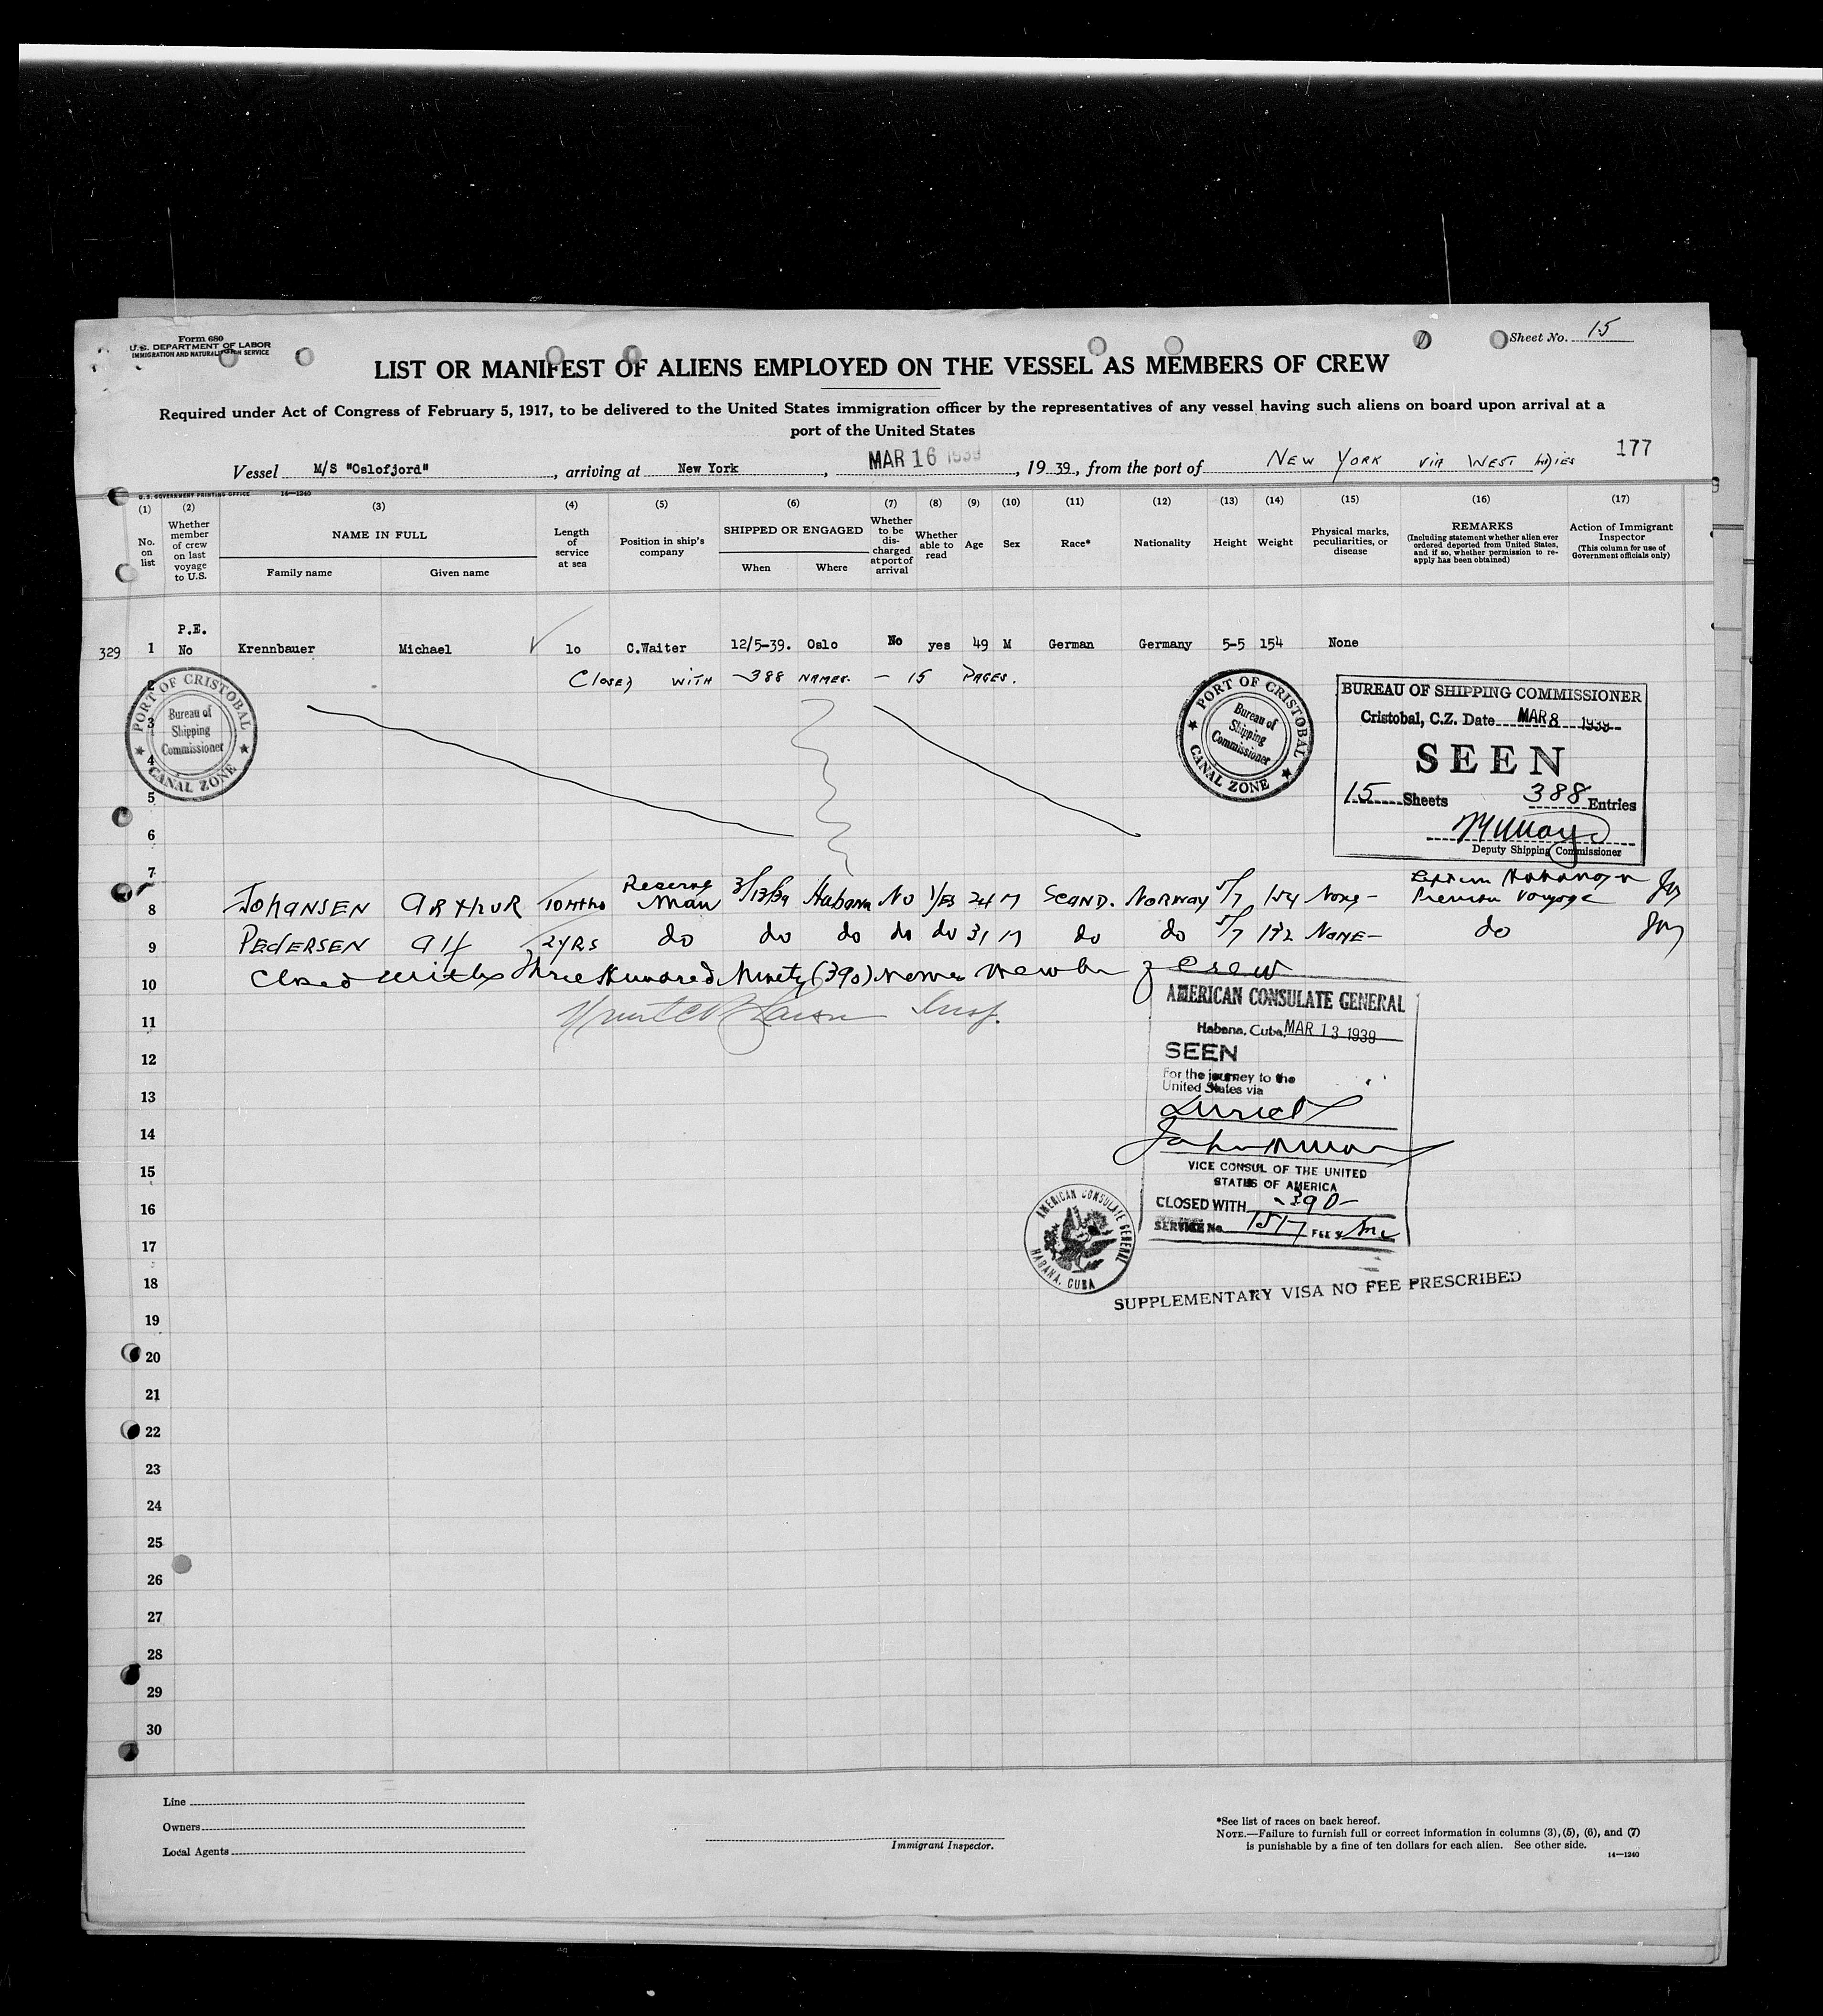 Form 680
U.S. DEPARTMENT OF LABOR
IMMIGRATION AND NATURALIZATION SERVICE
Sheet No. 15
LIST OR MANIFEST OF ALIENS EMPLOYED ON THE VESSEL AS MEMBERS OF CREW
Required under Act of Congress of February 5, 1917, to be delivered to the United States immigration officer by the representatives of any vessel having such aliens on board upon arrival at a
port of the United States
177
Vessel M/S "Oslofjord", arriving at New York, MAR 16 1939, 1939, from the port of NEW YORK VIA WEST INDIES
U.S. GOVERNMENT PRINTING OFFICE 14—1240
(1) (2) (3) (4) (5) (6) (7) (8) (9) (10) (11) (12) (13) (14) (15) (16) (17)
No. on list
Whether member of crew on last voyage to U.S.
NAME IN FULL
Family name Given name
Length of service at sea
Position in ship's company
SHIPPED OR ENGAGED
When Where
Whether to be discharged at port of arrival
Whether able to read
Age
Sex
Race*
Nationality
Height
Weight
Physical marks, peculiarities, or disease
REMARKS
(Including statement whether alien ever ordered deported from United States, and if so, whether permission to reapply has been obtained)
Action of Immigrant Inspector
(This column for use of Government officials only)
P.E.
329 1 No Krennbauer Michael 10 C.Waiter 12/5-39. Oslo No yes 49 M German Germany 5-5 154 None
2 CLOSED WITH -388 NAMES. - 15 PAGES.
3
4
5
6
7
PORT OF CRISTOBAL
Bureau of
Shipping
Commissioner
CANAL ZONE
PORT OF CRISTOBAL
Bureau of
Shipping
Commissioner
CANAL ZONE
BUREAU OF SHIPPING COMMISSIONER
Cristobal, C.Z. Date MAR 8 1939
SEEN
15 Sheets 388 Entries
Deputy Shipping Commissioner
8 JOHANSEN ARTHUR 10 Mths Reserve Man 3/13/39 Habana No YES 24 M SCAND. NORWAY 5/7 154 None - Previous Voyage
9 PEDERSEN Alf 2 YRS do do do do do 31 M do do 5/7 132 NONE - do
10 Closed with Three Hundred Ninety (390) Member of Crew
11
12
13
14
15
16
17
18
19
20
21
22
23
24
25
26
27
28
29
30
AMERICAN CONSULATE GENERAL
Habana, Cuba, MAR 13 1939
SEEN
For the journey to the
United States via
Direct
VICE CONSUL OF THE UNITED
STATES OF AMERICA
CLOSED WITH -390-
SERVICE No. 1517 FEE $
AMERICAN CONSULATE GENERAL
HABANA, CUBA
SUPPLEMENTARY VISA NO FEE PRESCRIBED
Line
Owners
Local Agents
Immigrant Inspector.
*See list of races on back hereof.
NOTE.—Failure to furnish full or correct information in columns (3), (5), (6), and (7)
is punishable by a fine of ten dollars for each alien. See other side.
14—1240